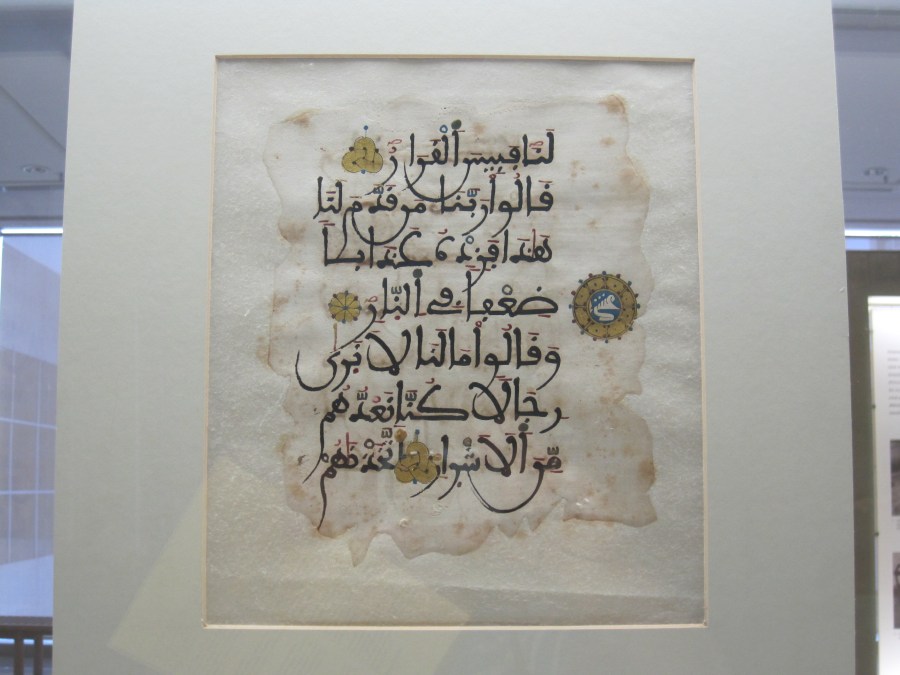 لَنَا فَبِيسَ ٱلْقَرَارُ
قَالُواْ رَبَّنَا مَن قَدَّمَ لَنَا
هَٰذَا فَزِدْهُ عَذَابًا
ضِعْفًا فِي ٱلنَّارِ
وَقَالُواْ مَا لَنَا لَا نَرَىٰ
رِجَالًا كُنَّا نَعُدُّهُم
مِّنَ ٱلَاشْرَارِ أَتَّخَذْنَٰهُمْ